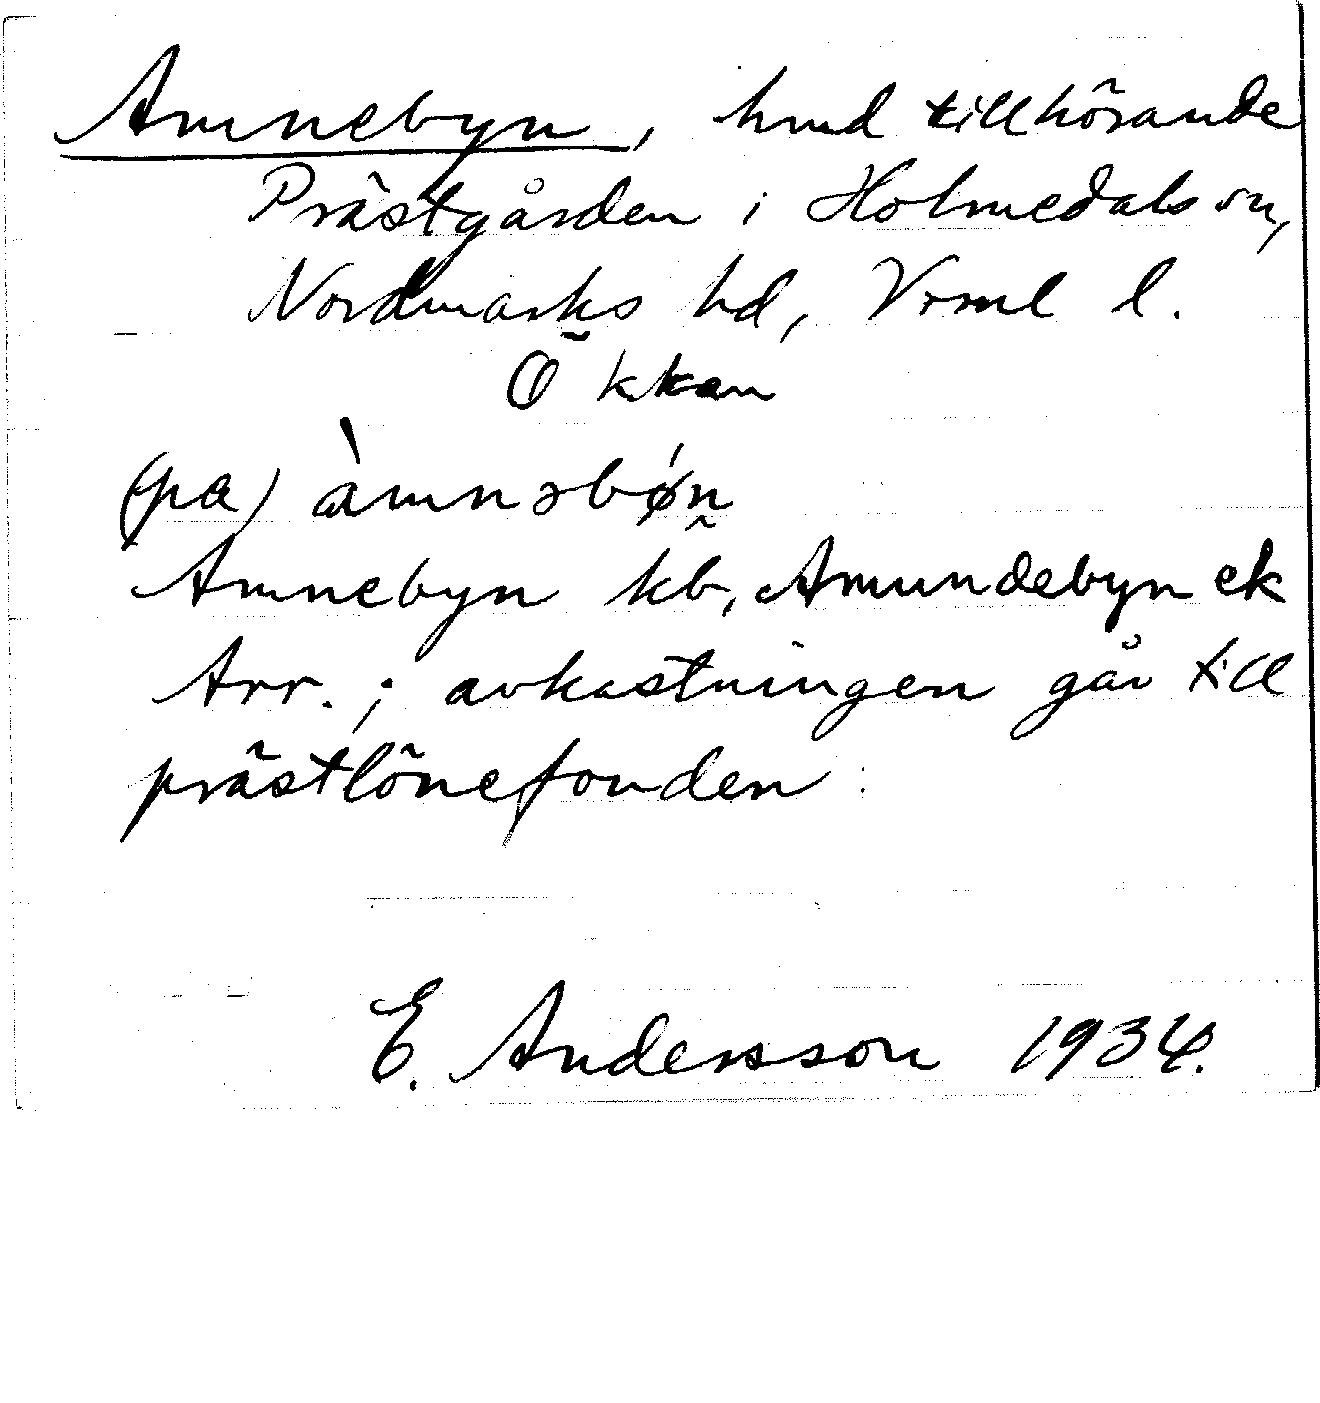 Amnebyn, hmd tillhörande
Prästgården i Holmedals sn,
Nordmarks hd, Vrml l.
Ö kkan
(pa) àmnəbǿn
Amnebyn kb, Amundebyn ek
Arr.; avkastningen går till
prästlönefonden.
E. Andersson 1934.